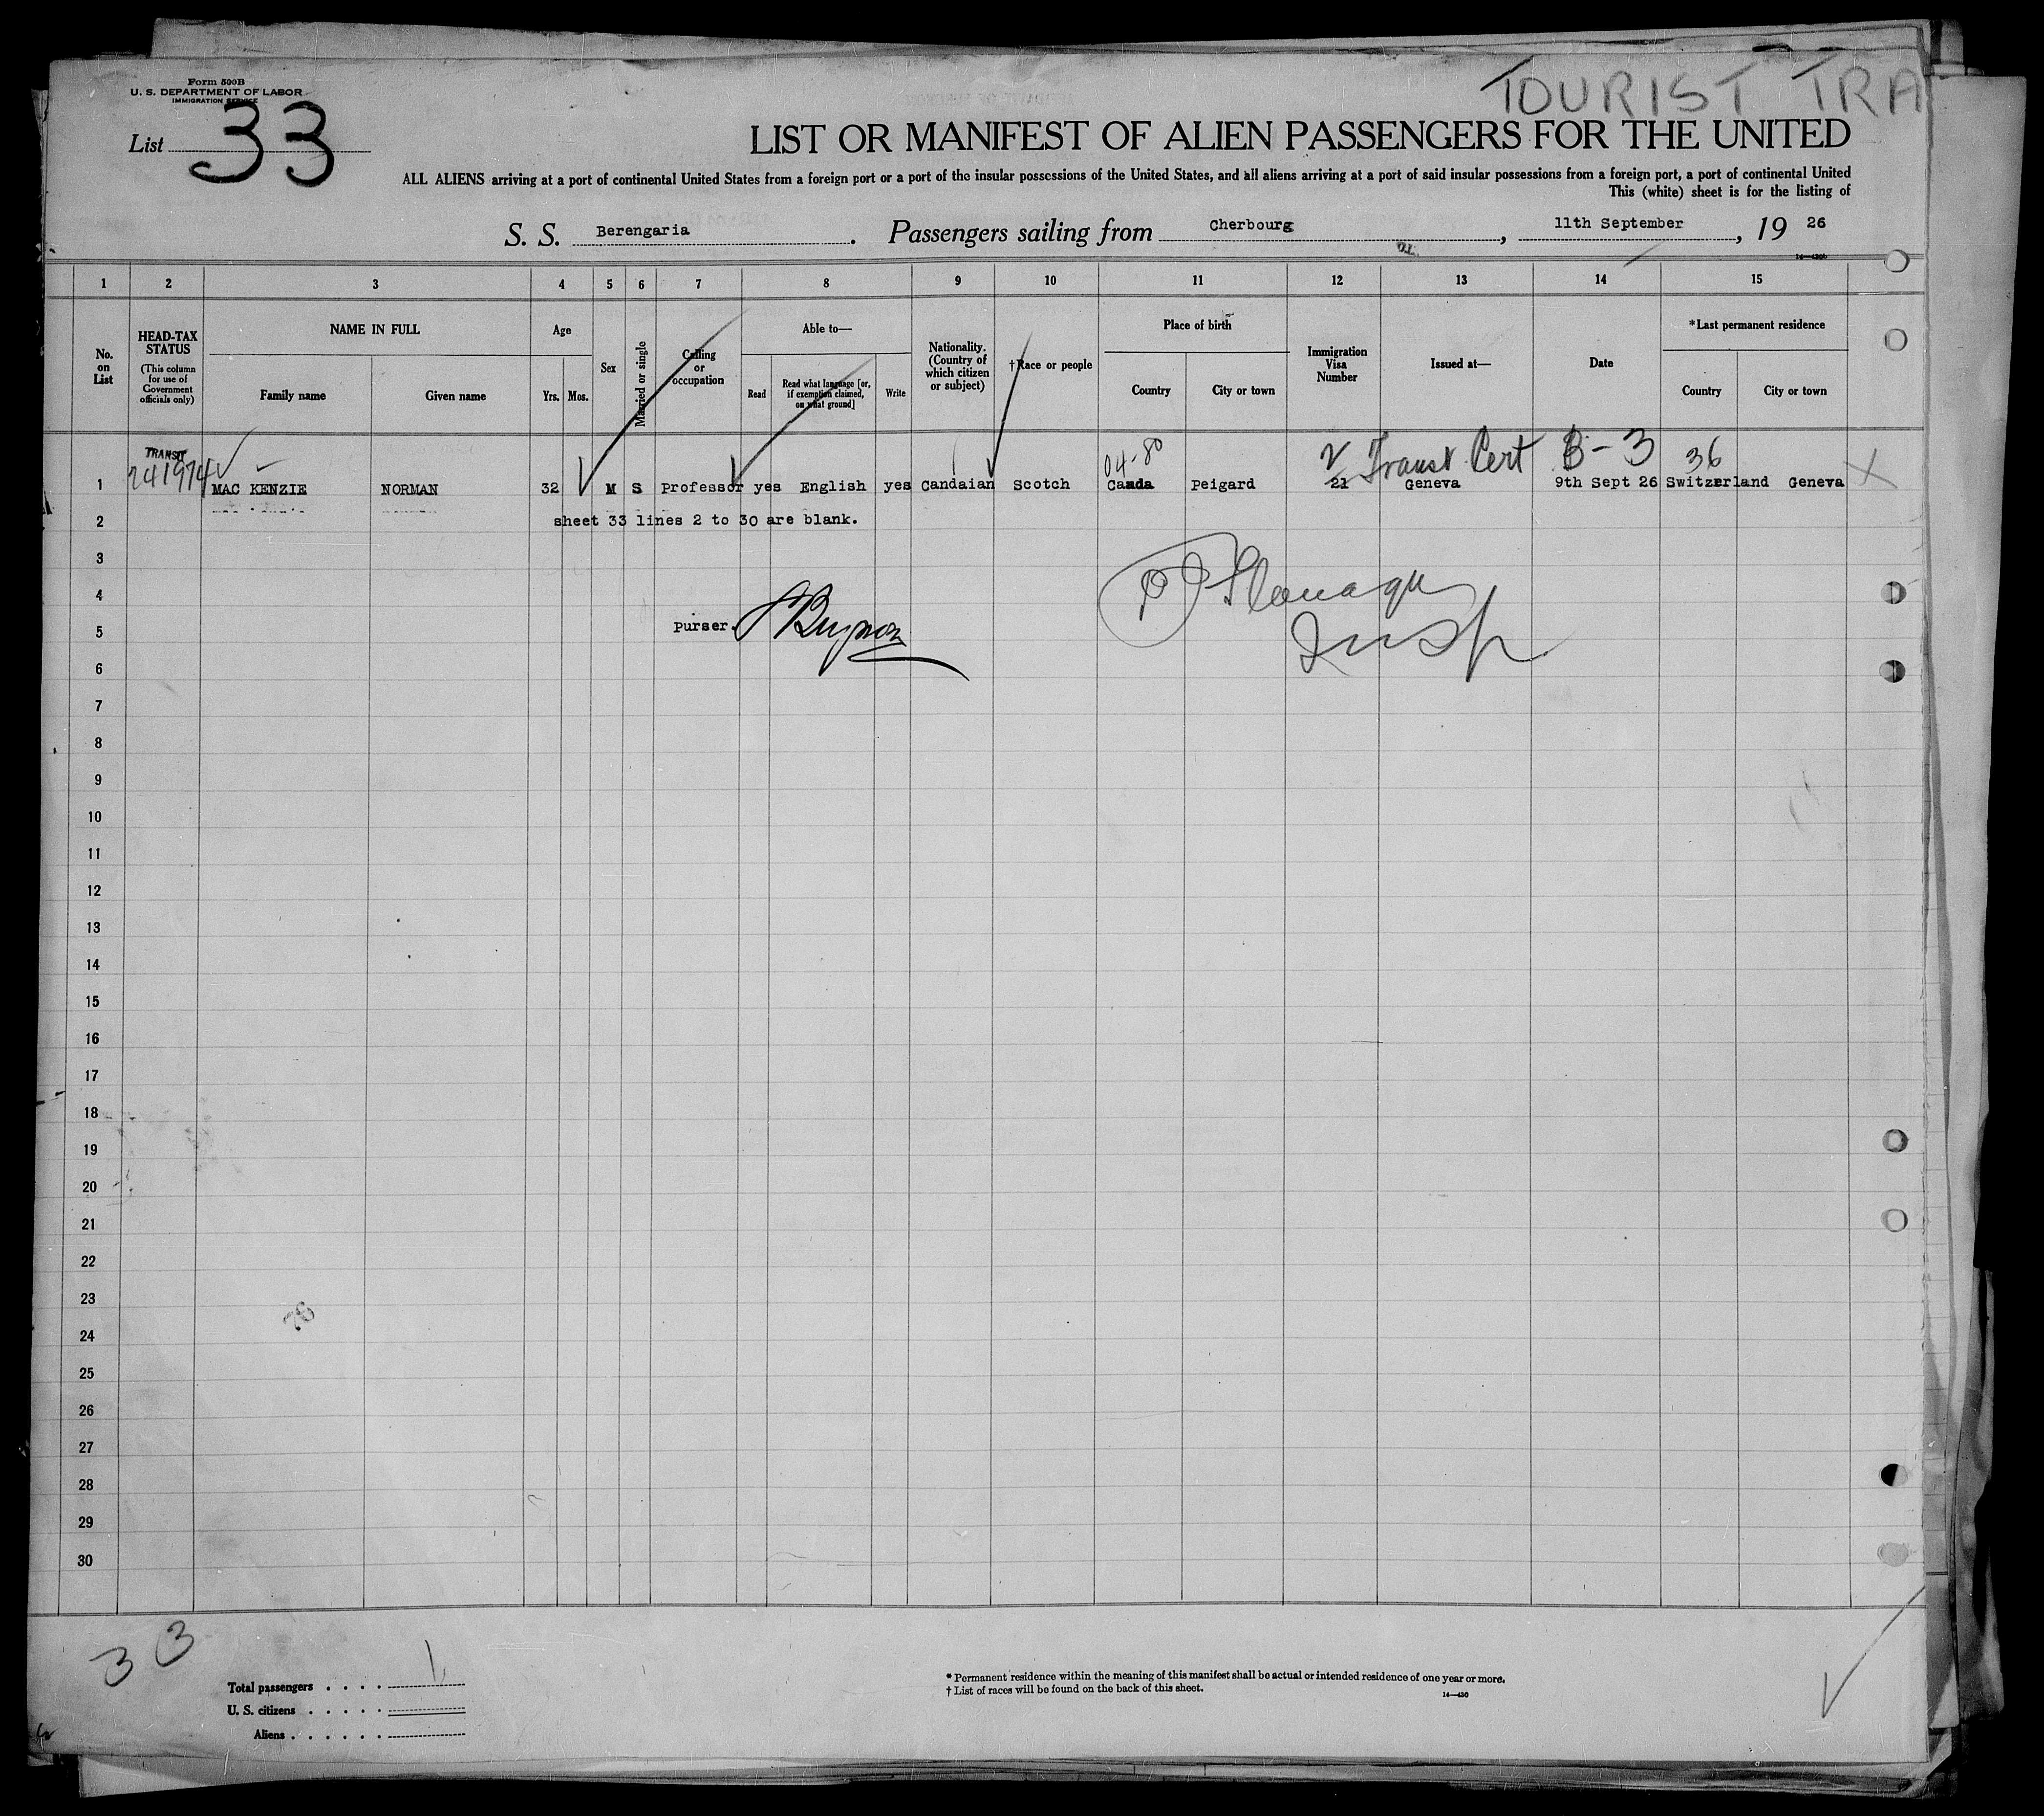 TOURIST TRA
Form 500B
U. S. DEPARTMENT OF LABOR
IMMIGRATION SERVICE
List 33
LIST OR MANIFEST OF ALIEN PASSENGERS FOR THE UNITED
ALL ALIENS arriving at a port of continental United States from a foreign port or a port of the insular possessions of the United States, and all aliens arriving at a port of said insular possessions from a foreign port, a port of continental United
This (white) sheet is for the listing of
S. S. Berengaria. Passengers sailing from Cherbourg, 11th September, 19 26
1 2 3 4 5 6 7 8 9 10 11 12 13 14 15
No. on List
HEAD-TAX STATUS (This column for use of Government officials only)
NAME IN FULL
Family name Given name
Age
Yrs. Mos.
Sex
Married or single
Calling or occupation
Able to—
Read Read what language [or, if exemption claimed, on what ground] Write
Nationality. (Country of which citizen or subject)
†Race or people
Place of birth
Country City or town
Immigration Visa Number
Issued at—
Date
*Last permanent residence
Country City or town
TRANSIT
241974
04-80 V Transt Cert B-3 36
1 MAC KENZIE NORMAN 32 M S Professor yes English yes Candaian Scotch Canda Peigard 21 Geneva 9th Sept 26 Switzerland Geneva X
2 sheet 33 lines 2 to 30 are blank.
3
4
5 purser.
Insp
6
7
8
9
10
11
12
13
14
15
16
17
18
19
20
21
22
23
24
25
26
27
28
29
30
33
Total passengers . . . . 1
U. S. citizens . . . . .
Aliens . . . . . .
* Permanent residence within the meaning of this manifest shall be actual or intended residence of one year or more.
† List of races will be found on the back of this sheet.
14—430